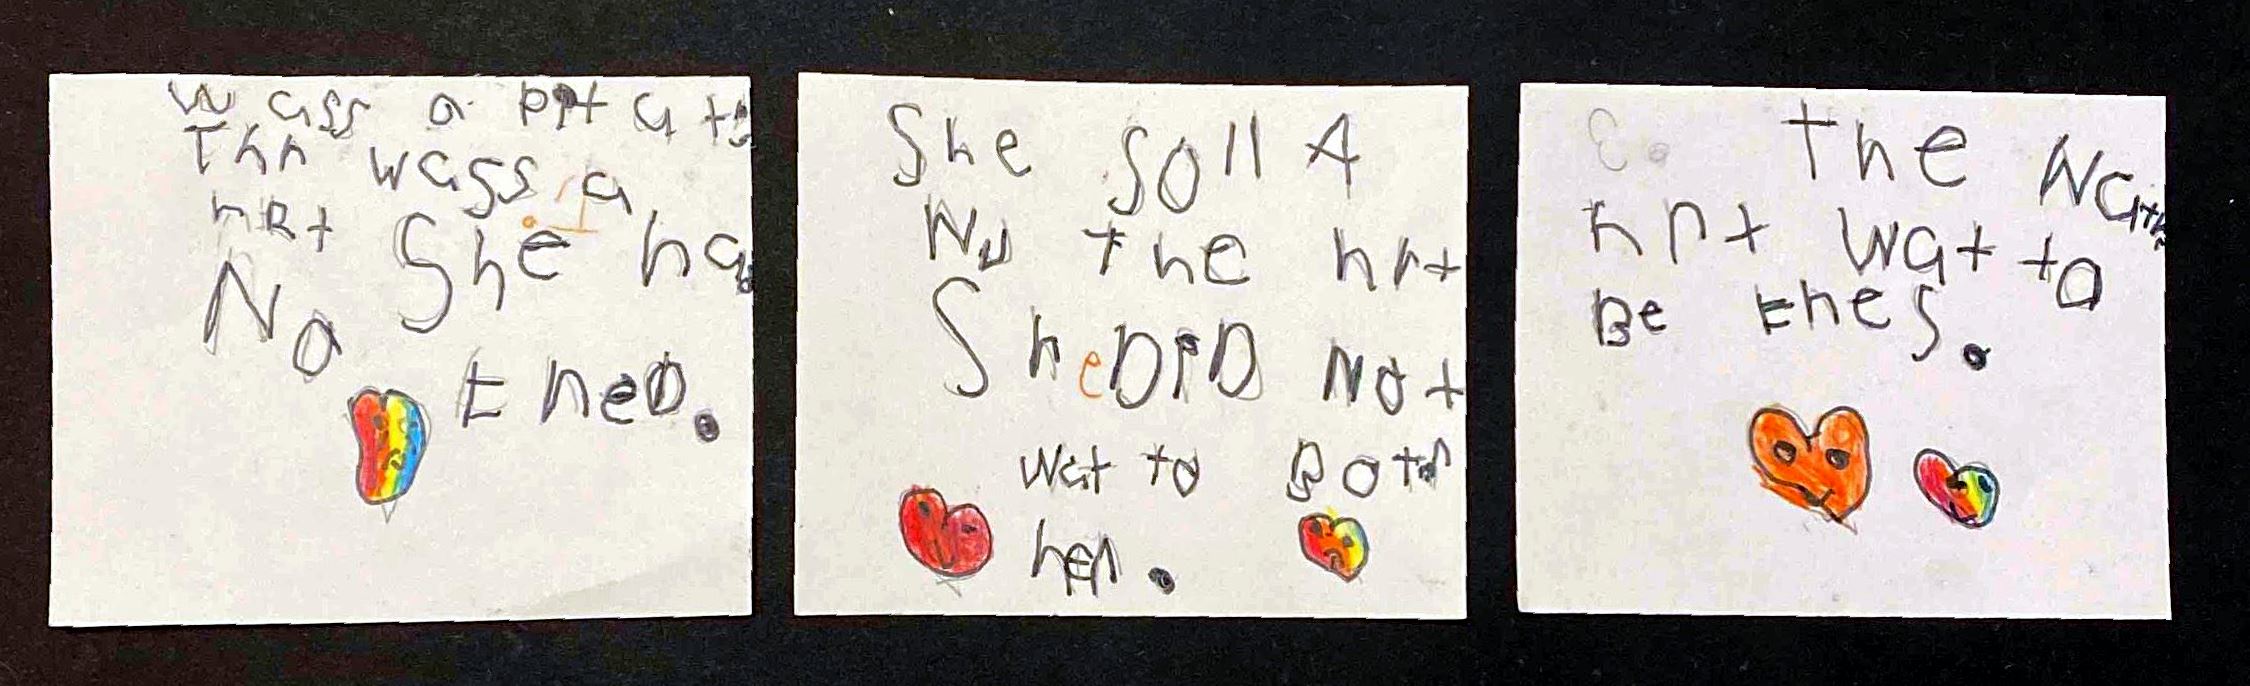 wass a
Thr wass a
hRt She ha
No
EneD.
She soll A
Nu the hrt
SheDiD Not
wat to Botr
her.
the
hrt wat to
Be Enes.